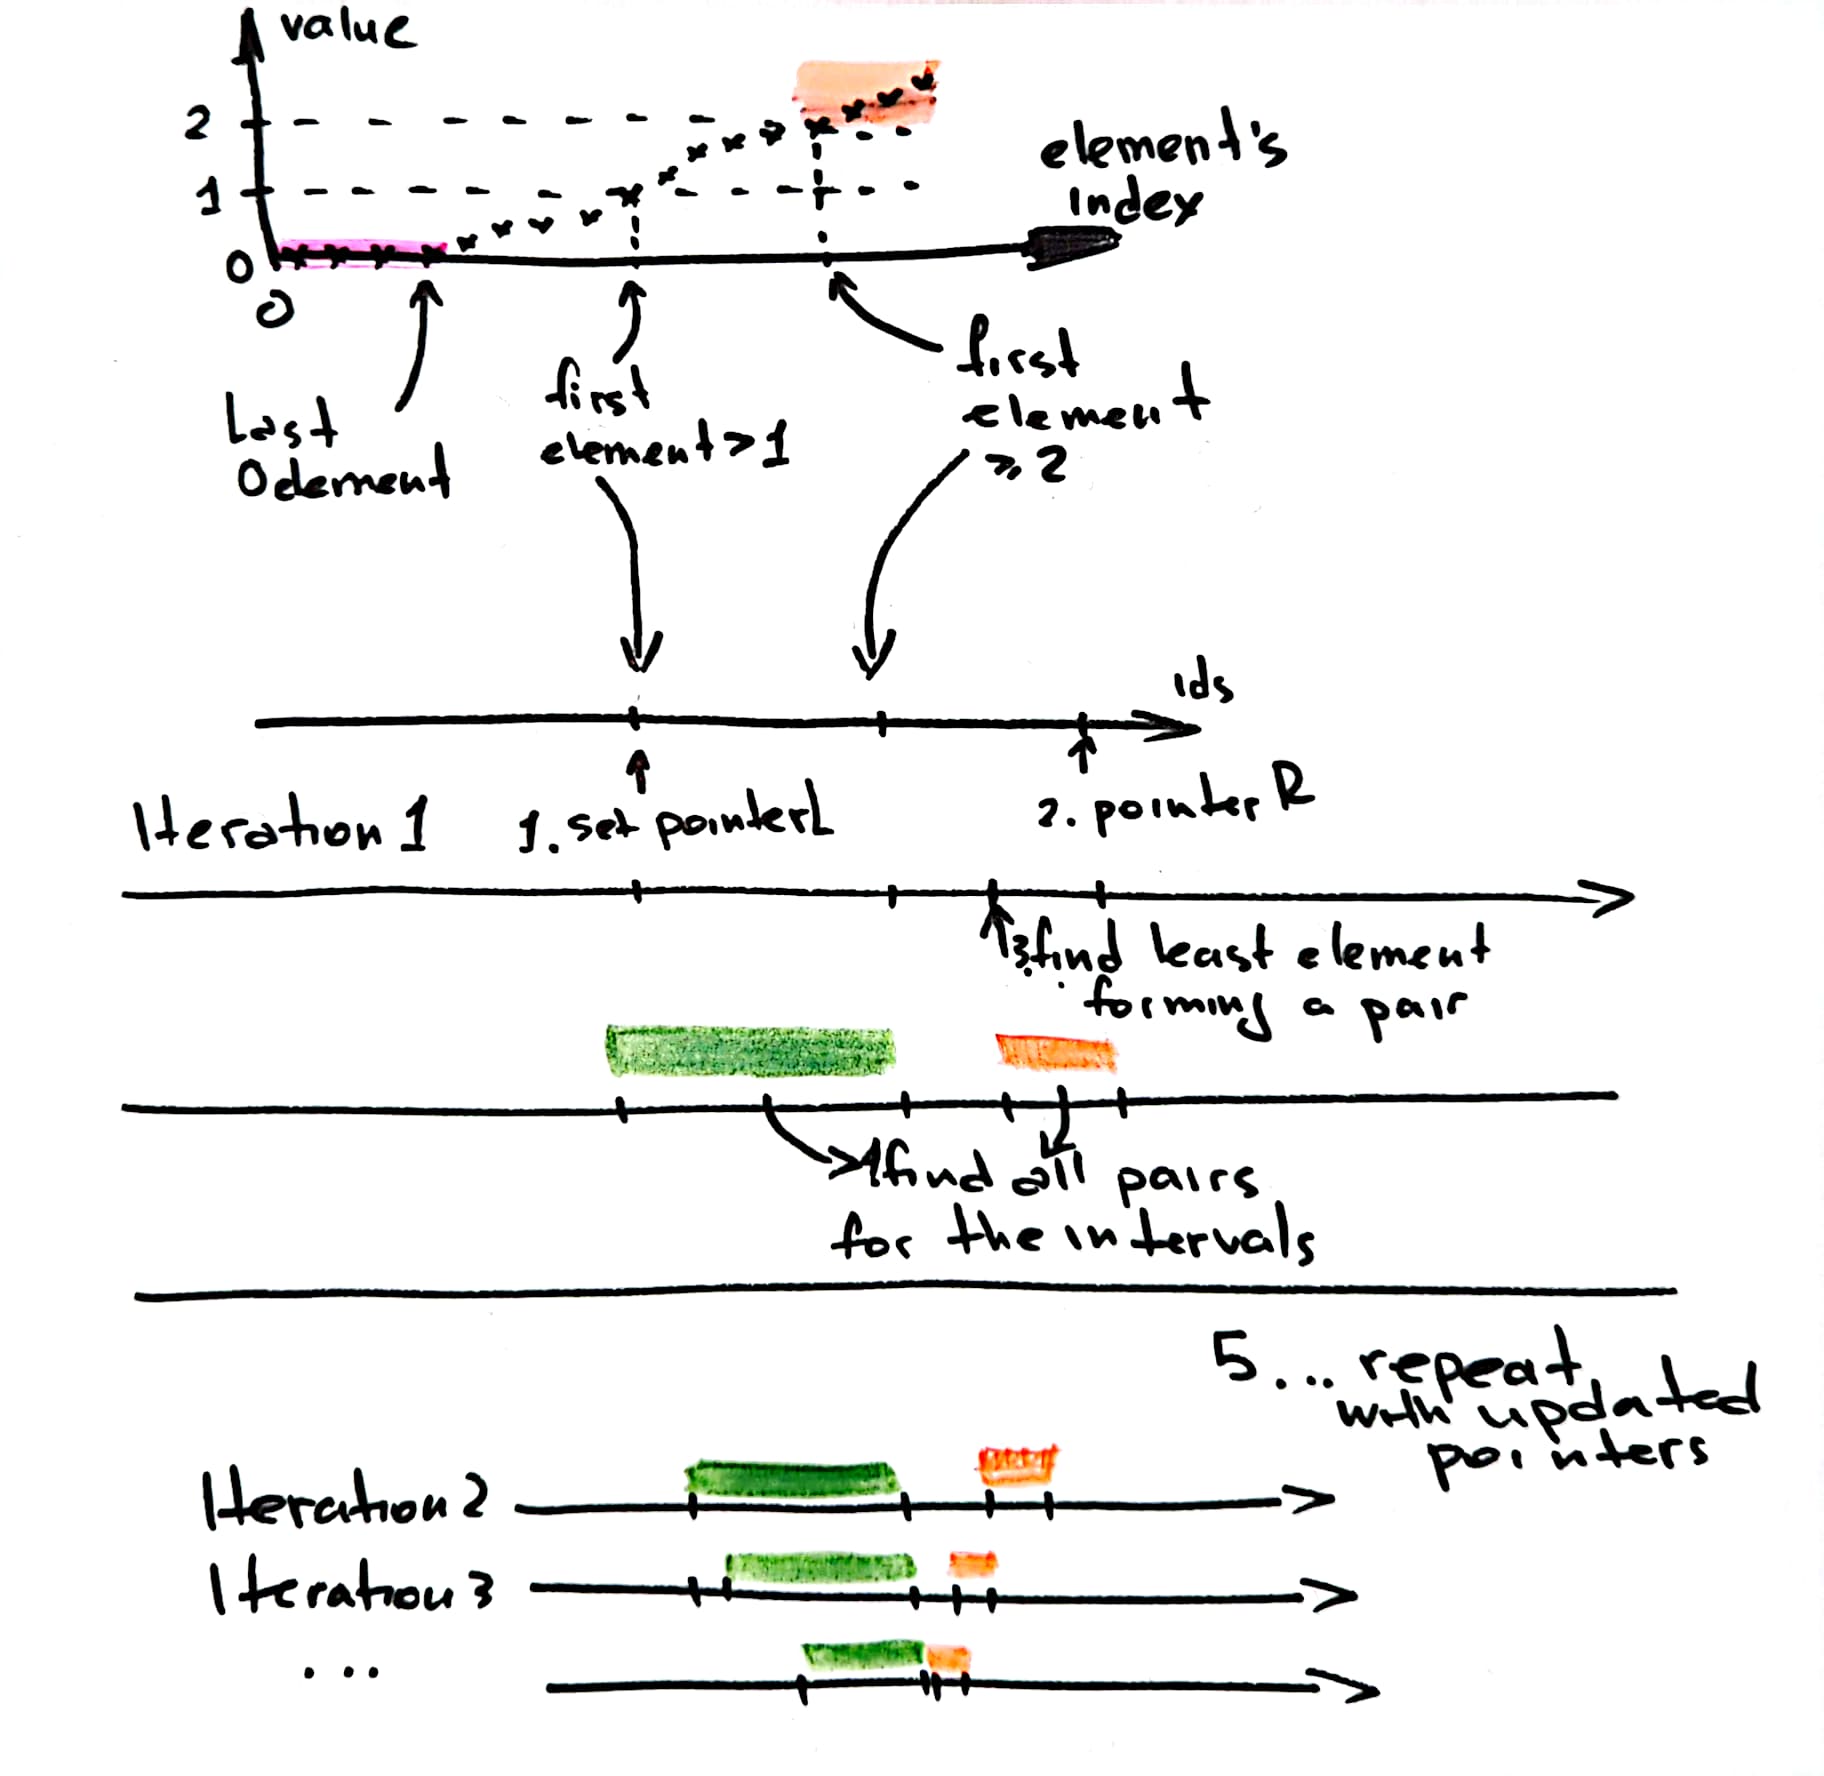 value
2
1
0
0
element's
index
Last
0 element
first
element > 1
first
element
⩾ 2
ids
Iteration 1
1. set pointer L
2. pointer R
3. find least element
forming a pair
4 find all pairs
for the intervals
5... repeat
with updated
pointers
Iteration 2
Iteration 3
...